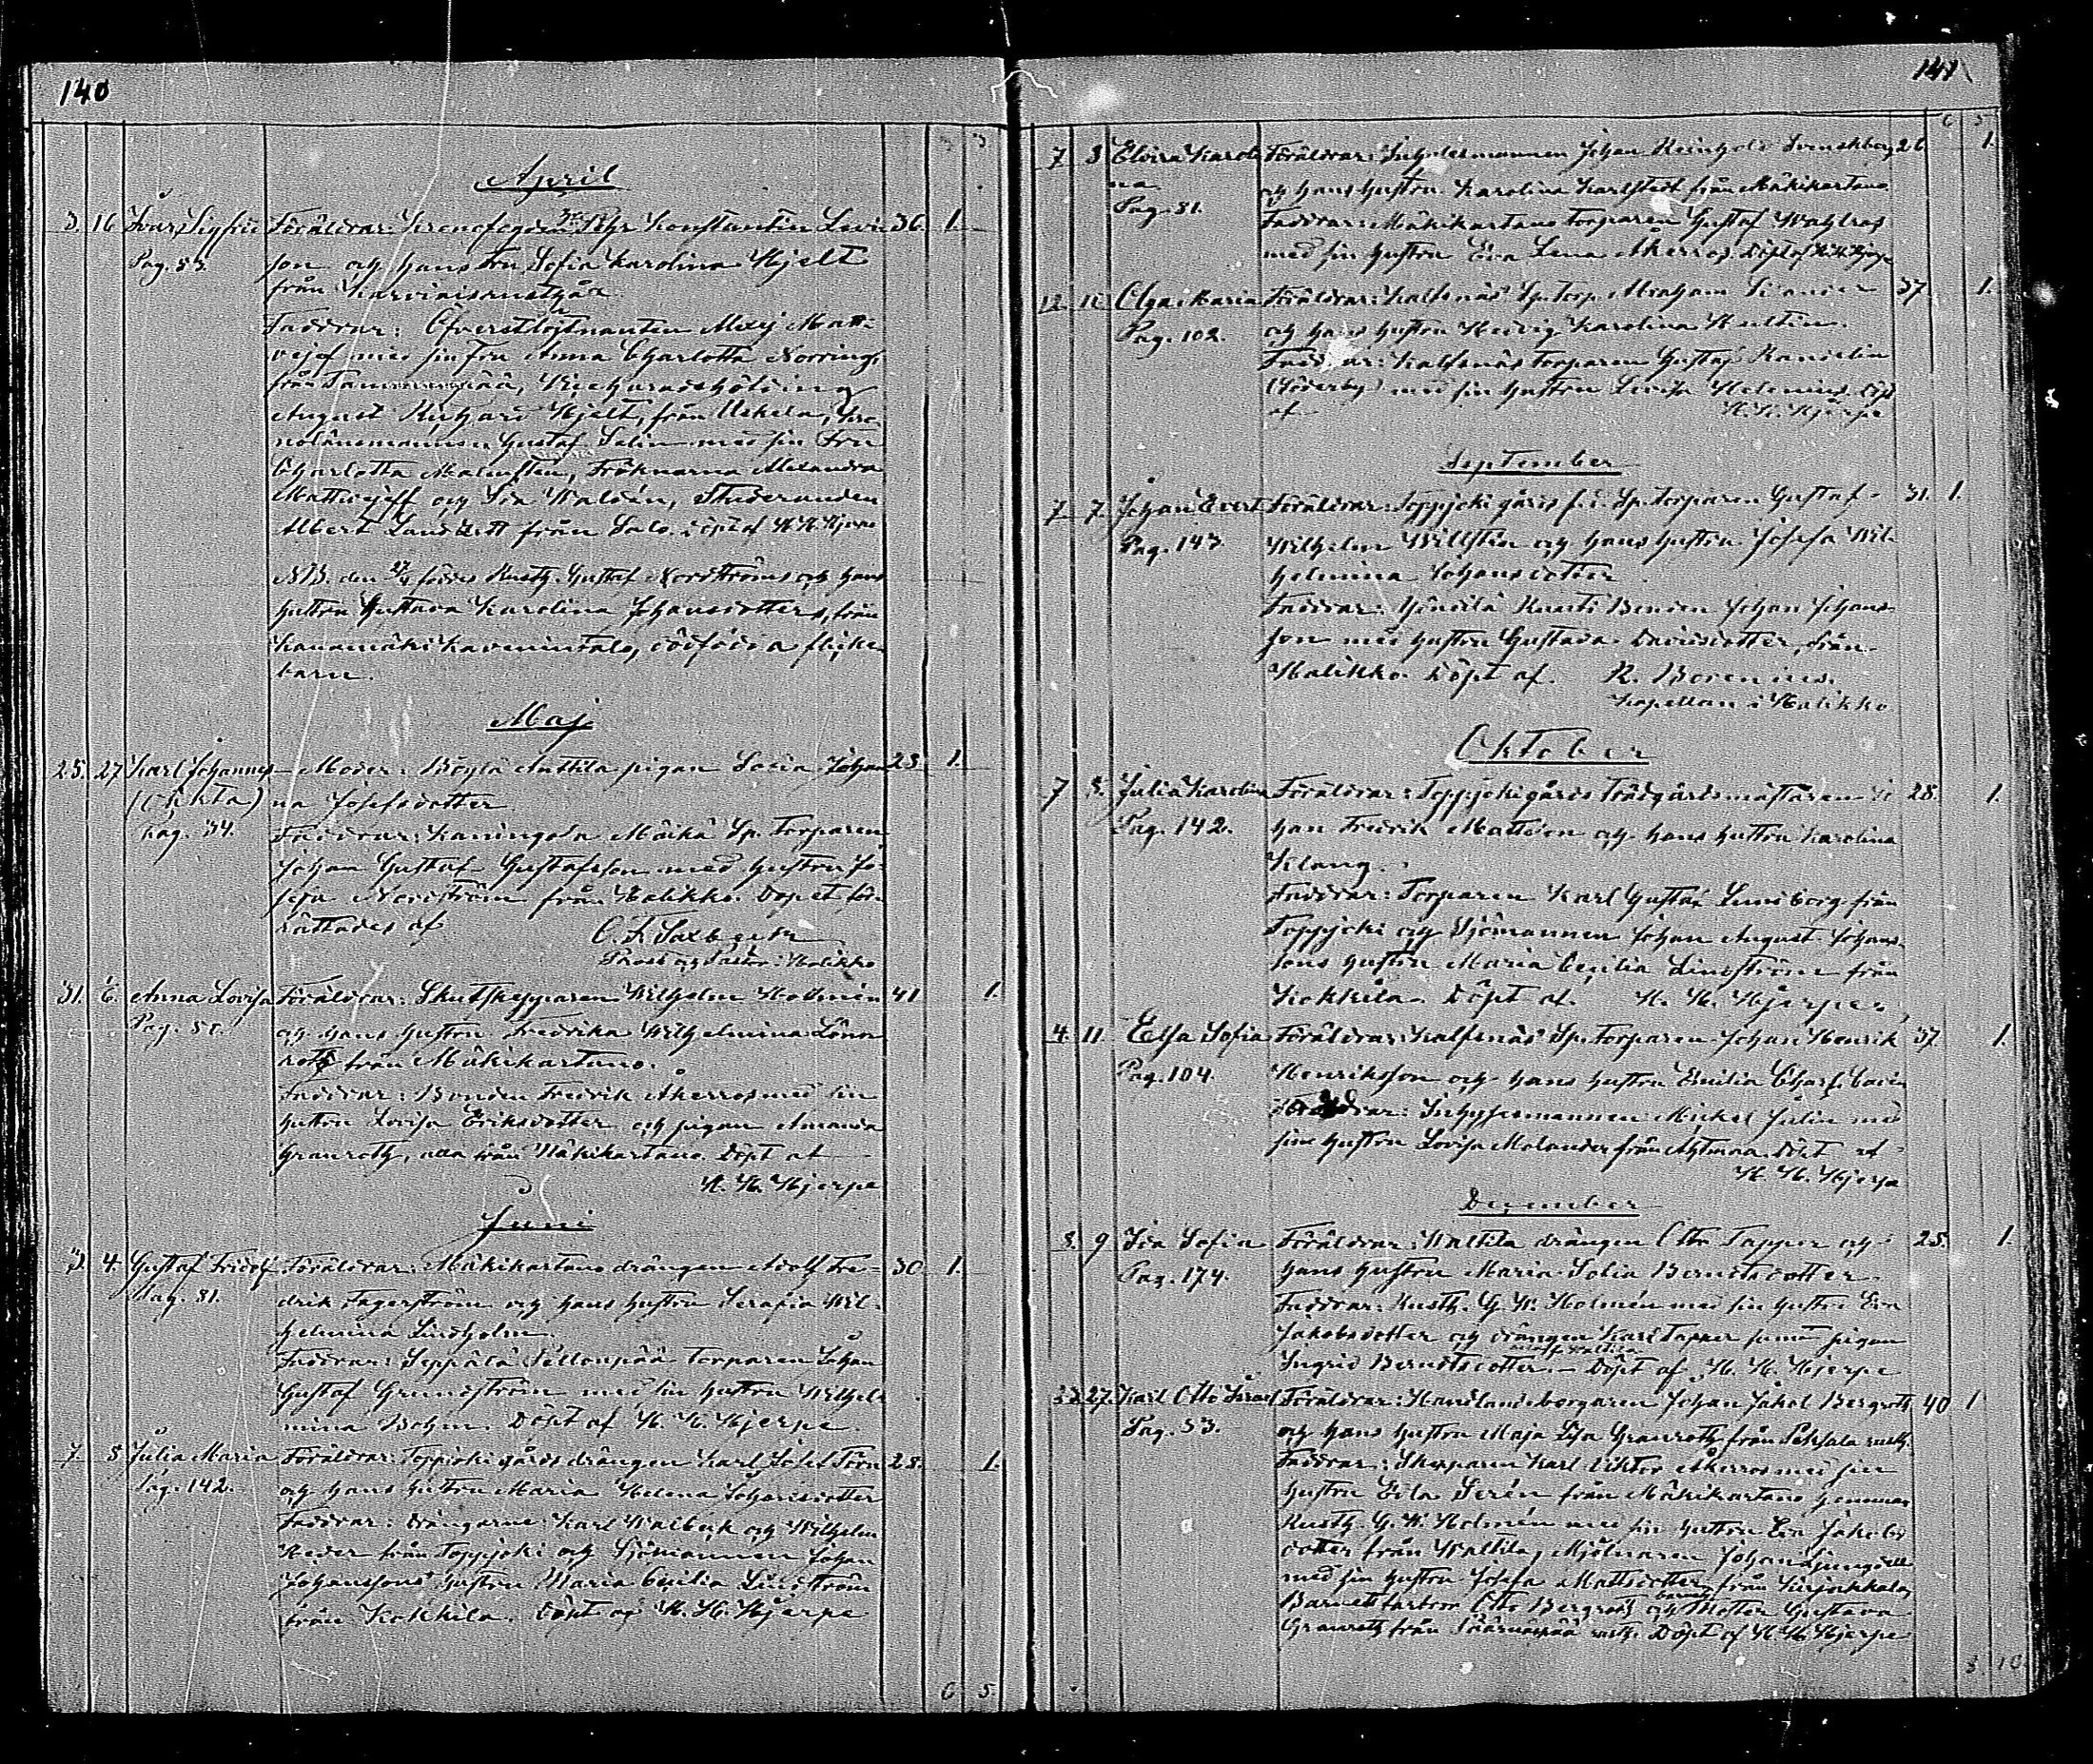 140
April
3. 16 Ivar Sigfrid Föräldrar: Kronofogden Petr Konstantin Levin 36. 1.
Pag. 53. son och hans Fru Sofia Karolina Hjelt
från
Faddrar: Öfverstlöjtnanten Alexej Matt-
vejef med sin Fru Anna Charlotta Norring,
från
August Richard Hjelt, från Uskela, Kro-
nolänsmannen Gustaf Salin med sin Fru
Charlotta Malmsten, Fröknarna Alexandra
Mattvejeff och Ida Waldén, Studeranden
Albert från Salo. döpt af H. H. Hjerpe
NB. den 27/4 föddes Rusth. Gustaf Nordströms och hans
hustru Gustava Karolina Johansdotters, från
dödfödda flicke-
barn.
Maj
25. 27. Karl Johannes – Moder: Böylä Anttila pigan Maria Johan- 23. 1.
(Oäkta) na Josefsdotter
Pag. 34. Faddrar: Kaningola Mäikä Sp. Torparen
Johan Gustaf Gustafsson med hustru Jo-
sefa Nordström från Halikko. Dopet för-
rättades af C. F. Saxbeck
Prost och Pastor i Halikko
31. 6. Anna Lovisa Föräldrar: Skutskepparen Wilhelm Holmén 41 1.
Pag. 80. och hans hustru Fredrika Wilhelmina Lönn-
roth från Mäkikartano.
Faddrar: Bonden Fredrik Åkerros med sin
hustru Lovisa Eriksdotter och pigan Amanda
Granroth, alla från Mäkikartano. Döpt af
H. H. Hjerpe
Juni
3. 4. Gustaf Fridolf Föräldrar: Mäkikartano drängen Adolf Fre- 30. 1.
Pag. 81. drik Fagerström och hans hustru Serafia Wil-
helmina Lindholm.
Faddrar: Seppälä Pellonpää Torparen Johan
Gustaf Grundström med sin hustru Wilhel-
mina Bohm. Döpt af H. H. Hjerpe.
7. 8 Julia Maria Föräldrar: Teppjoki gårds drängen Karl Josef Törn 28. 1.
Pag. 142. och hans hustru Maria Helena Johansdotter
Faddrar: Drängarne: Karl Walbäck och Wilhelm
Heder från Teppjoki och Sjömannen Johan
Johanssons hustru Maria Cecilia Lindström
från Kokkila. Döpt af H. H. Hjerpe
6 5.
141
6 5
7 8 Elvira Karoli- Föräldrar: Inhysesmannen Johan Reinhold Svenskberg 26 1.
na och hans hustru Karolina Karlstedt från Mäkikartano.
Pag. 81. Faddrar: Mäkikartano Torparen Gustaf Wahlros
med sin hustru Eva Lena Åkerros. Döpt af H. H. Hjerpe
12. Olga Maria Föräldrar: Kalfsnäs Sp. Torp. Abraham 37 1.
Pag. 102. och hans hustru Hedvig Karolina Hultin.
Faddrar: Kalfsnäs Torparen Gustaf Randelin
(Söderby) med sin hustru Lovisa Helenius. Döpt
af H. H. Hjerpe
September
7. 7. Johan Evert Föräldrar: Teppjoki gårds f. d. Sp. Torparen Gustaf 31. 1.
Pag. 143. Wilhelm Willstén och hans hustru Josefa Wil-
helmina Johansdotter
Faddrar: Yöntilä Knuuti Bonden Johan Johans-
son med hustru Gustava Davidsdotter, från
Halikko. Döpt af R. Berenius.
Kapellan i Halikko
Oktober
7 8. Julia Karolina Föräldrar: Teppjoki gårds Trädgårdsmästaren Jo- 28. 1.
Pag. 142. han Fredrik Mattson och hans hustru Karolina
Klang.
Faddrar: Torparen Karl Gustaf Lundborg från
Teppjoki och Sjömannen Johan August Johans-
sons hustru Maria Cecilia Lindström från
Kokkila. Döpt af H. H. Hjerpe.
4. 11. Elsa Sofia Föräldrar: Kalfsnäs Sp. Torparen Johan Henrik 37 1.
Pag. 104. Henriksson och hans hustru Emilia Charl.
Faddrar: Inhysesmannen Mickel Julin med
sin hustru Lovisa Molander från Ahtmaa. Döpt af
H. H. Hjerpe
December
8. 9 Ida Sofia Föräldrar: Waltila drängen Otto Tapper och 25. 1.
Pag. 174. hans hustru Maria Sofia Berndtsdotter.
Faddrar: Rusth. G. W. Holmén med sin hustru Eva
Jakobsdotter och drängen Karl Tapper samt pigan
Ingrid Berndtsdotter. – Döpt af H. H. Hjerpe
27. Karl Otto Israel Föräldrar: Handlandeborgaren Johan Jakob Bergroth 40 1
Pag. 53. och hans hustru Maja Lisa Granroth från Pohjala rusth.
Faddrar: Skepparen Karl Viktor Åkerros med sin
hustru Eva Serén från Mäkikartano hemman
Rusth. G. W. Holmén med sin hustru Eva Jakobs-
dotter från Waltila, Mjölnaren Johan Ljungdell
med sin hustru Josefa Mattsdotter från Kirjakkala,
Barnets farbror Otto Bergroth och Moster Gustava
Granroth från rusth. Döpt af H. H. Hjerpe
8. 10